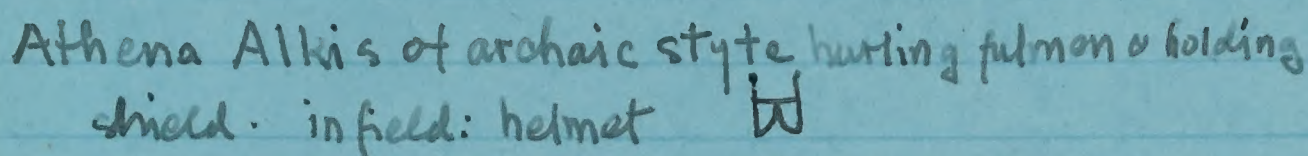 Athena Alkis of archaic style hurling fulmen & holding
shield. in field: helmet